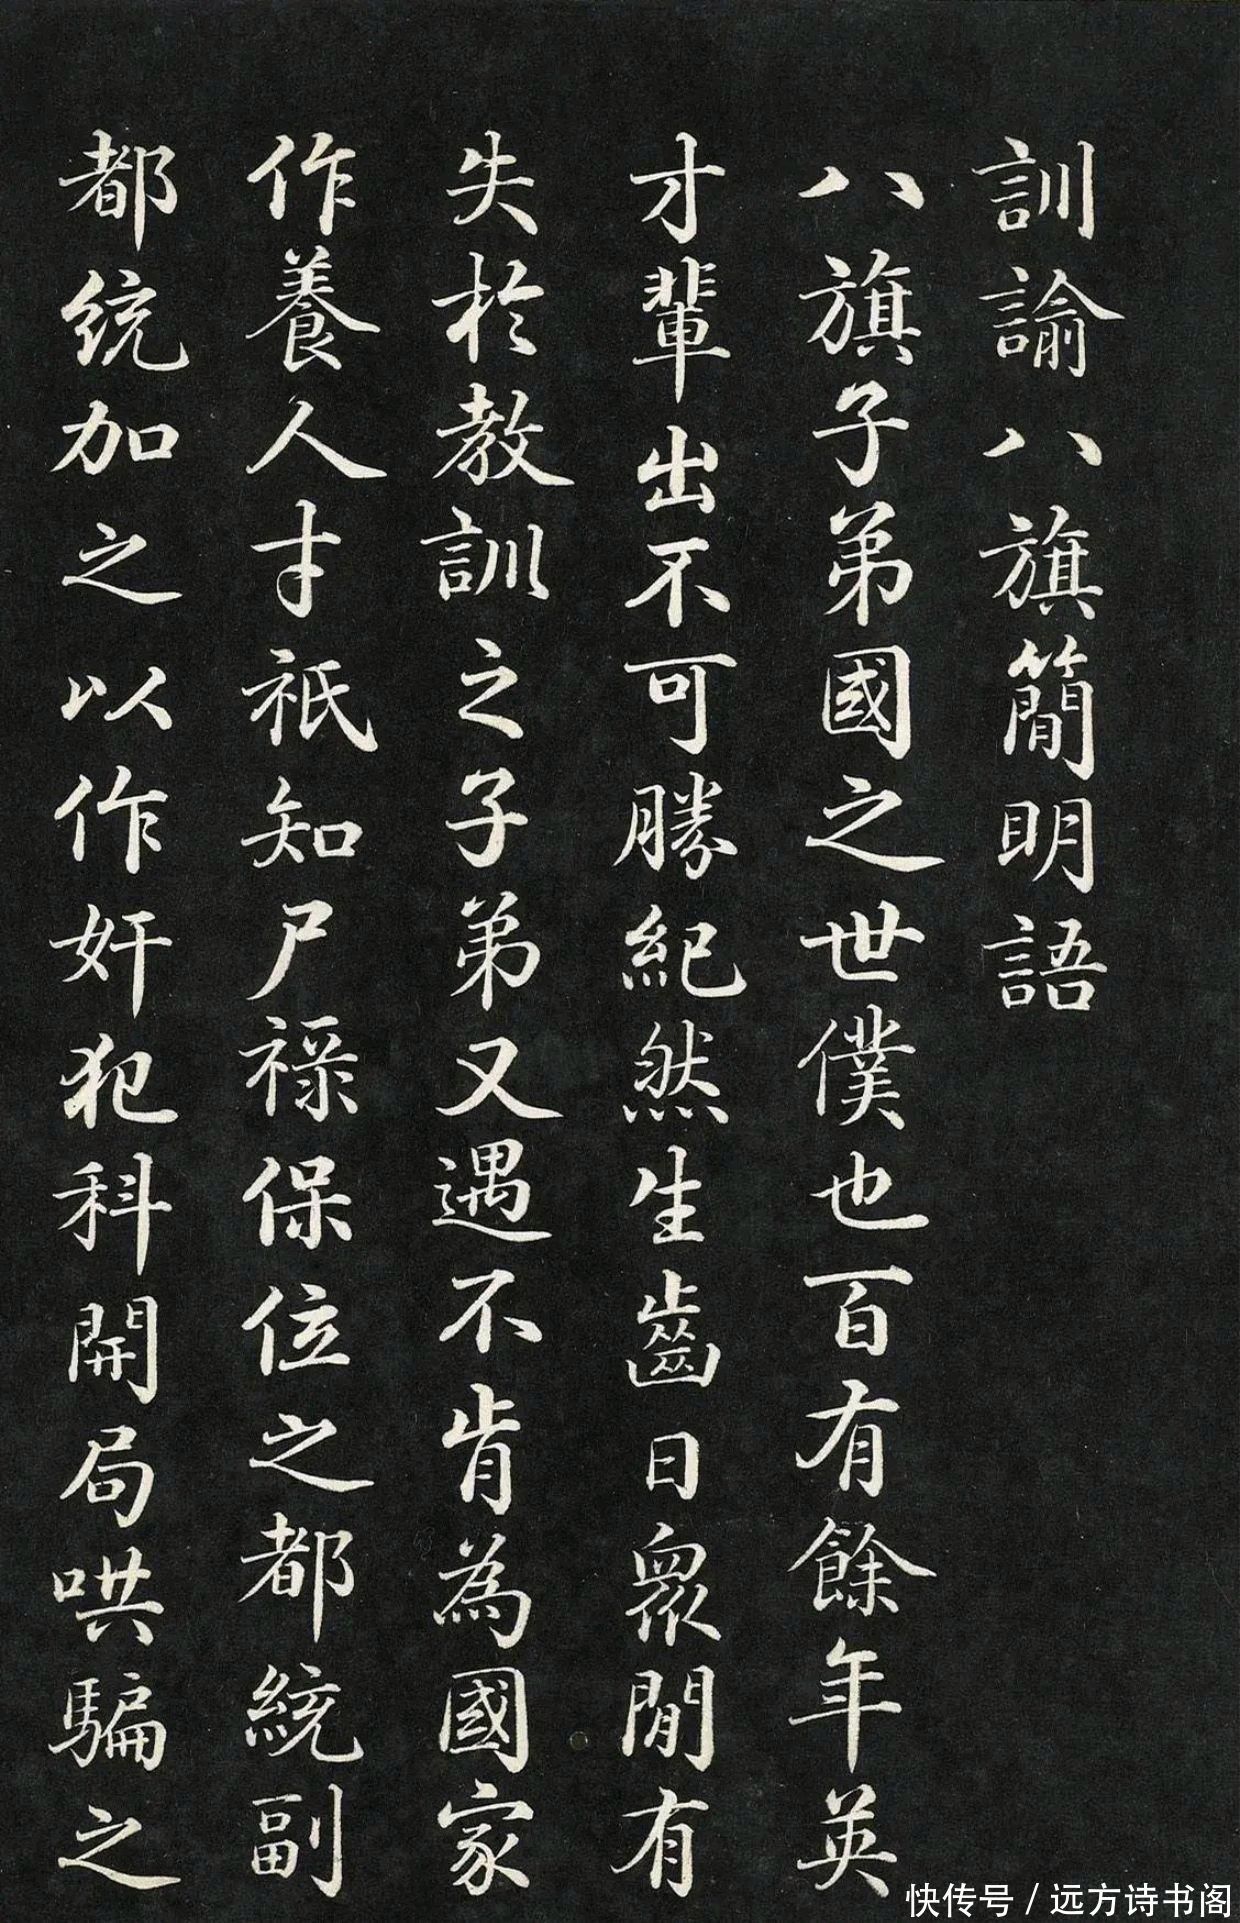 訓諭八旗簡明語
八旗子弟國之世僕也百有餘年英
才輩出不可勝紀然生齒日眾閒有
失於教訓之子弟又遇不肯為國家
作養人才祇知尸祿保位之都統副
都統加之以作奸犯科開局哄騙之
快传号 / 远方诗书阁